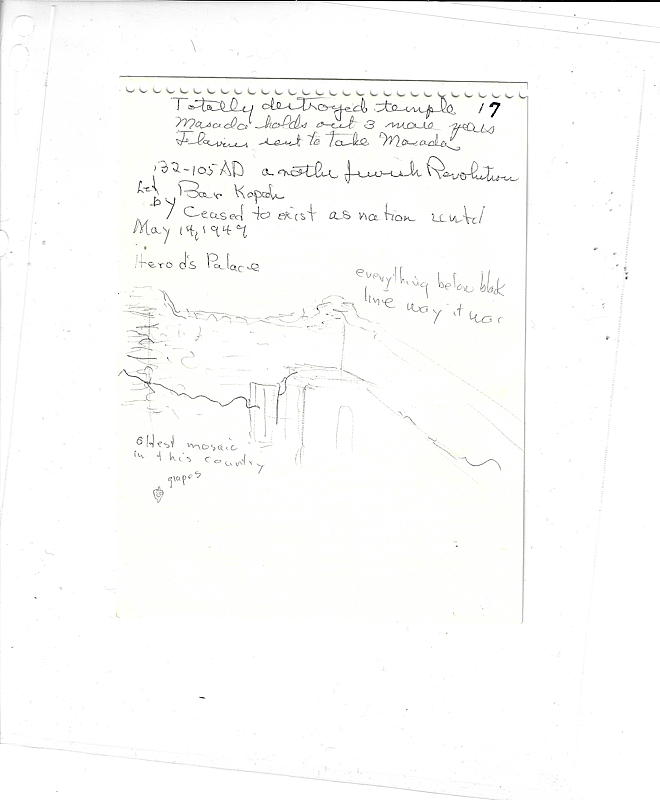 Totally destroyed temple 17
Masada holds out 3 more years
Flavius sent to take Masada
132-105 AD another Jewish Revolution
Led by Bar Kopah
Ceased to exist as nation until
May 14, 1949
Herod's Palace
everything below black
line way it was
oldest mosaic
in this country
grapes